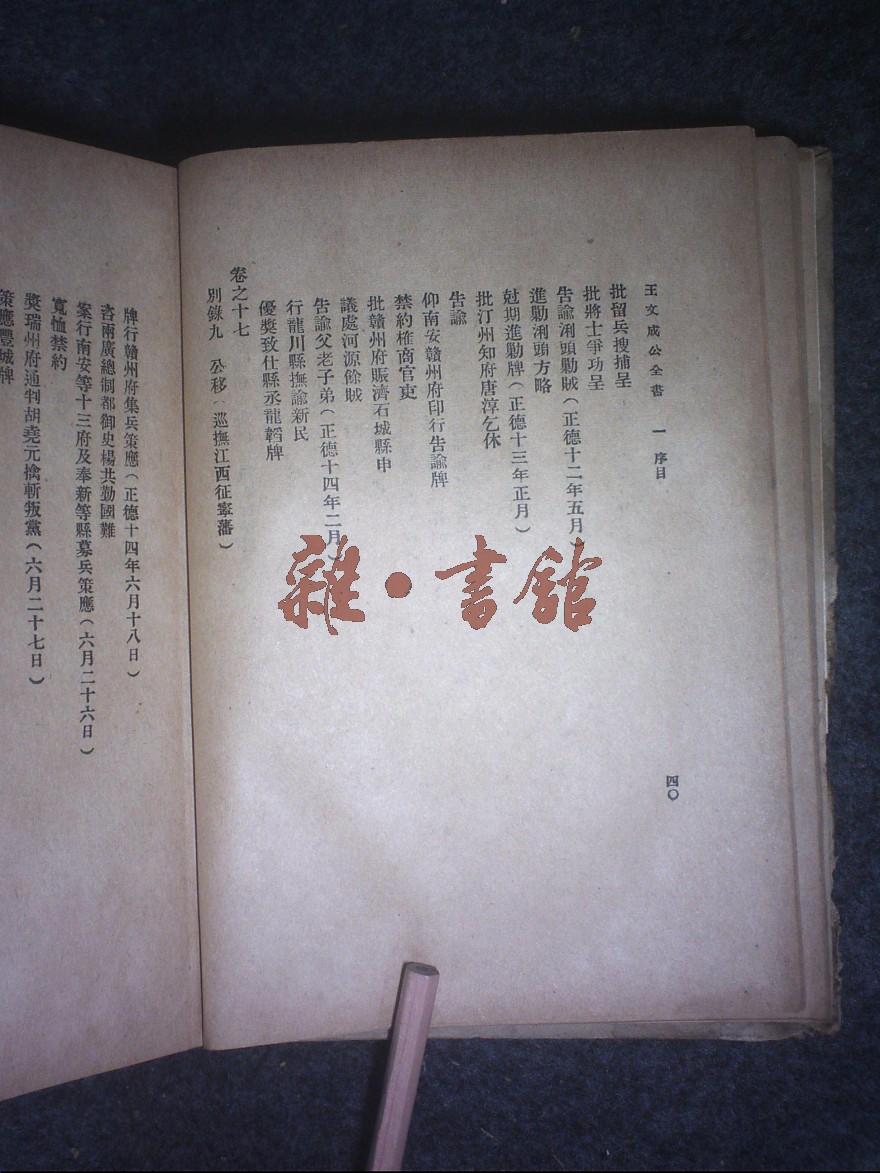 王文成公全書 一 序目
四〇
批留兵搜捕呈
批將士爭功呈
告諭浰頭勦賊(正德十二年五月)
進勦浰頭方略
尅期進勦牌(正德十三年正月)
批汀州知府唐淳乞休
告諭
仰南安贛州府印行告諭牌
禁約榷商官吏
批贛州府賑濟石城縣申
議處河源餘賊
告諭父老子弟(正德十四年二月)
行龍川縣撫諭新民
優獎致仕縣丞龍韜牌
卷之十七
別錄九 公移(巡撫江西征寧藩)
牌行贛州府集兵策應(正德十四年六月十八日)
咨兩廣總制都御史楊共勤國難
案行南安等十三府及奉新等縣募兵策應(六月二十六日)
寬恤禁約
獎瑞州府通判胡堯元擒斬叛黨(六月二十七日)
策應豐城牌
雜·書館